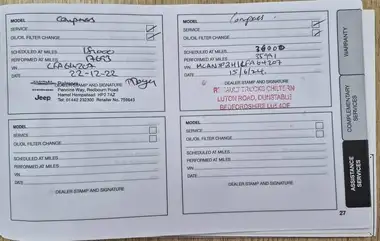 MODEL Compass
SERVICE
OIL/OIL FILTER CHANGE
SCHEDULED AT MILES 18000
PERFORMED AT MILES
VIN
DATE 22-12-22
DEALER STAMP AND SIGNATURE
Jeep
Pennine Way, Redbourn Road
Hemel Hempstead HP2 7AZ
Tel: 01442 292300 Retailer No. 75843
MODEL Compass
SERVICE
OIL/OIL FILTER CHANGE
SCHEDULED AT MILES
PERFORMED AT MILES
VIN
DATE
DEALER STAMP AND SIGNATURE
RENAULT TRUCKS CHILTERN
LUTON ROAD, DUNSTABLE
BEDFORDSHIRE
MODEL
SERVICE
OIL/OIL FILTER CHANGE
SCHEDULED AT MILES
PERFORMED AT MILES
VIN
DATE
DEALER STAMP AND SIGNATURE
MODEL
SERVICE
OIL/OIL FILTER CHANGE
SCHEDULED AT MILES
PERFORMED AT MILES
VIN
DATE
DEALER STAMP AND SIGNATURE
WARRANTY
COMPLIMENTARY
SERVICES
ASSISTANCE
SERVICES
27